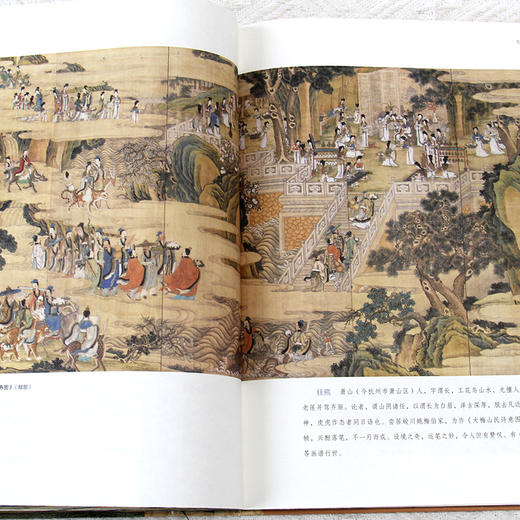 寿图》（局部）
任熊 萧山（今杭州市萧山区）人，字渭长，工花鸟山水，尤擅人
老莲并驾齐驱。论者，谓山阴诸任，以渭长为白眉，泽古深厚，脱去凡近
神，虎虎作态者同日语也。尝居蛟川姚梅伯家，为作《大梅山民诗意图
帧，兴酣落笔，不一月而成。设境之奇，运笔之妙，令人叵有赞叹。有
等画谱行世。